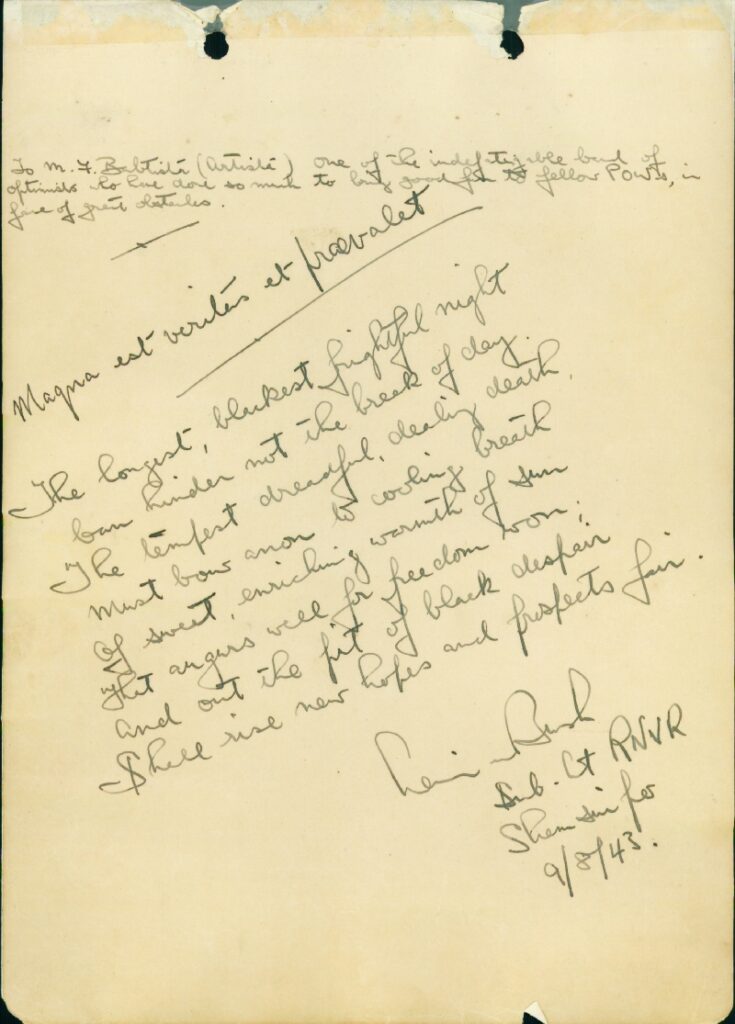 To M. F. Baptista (Artista), one of the indefatigable band of
optimists who have done so much to bring good fun to fellow POWs, in
face of great obstacles.
Magna est veritas et prævalet
The longest, blackest frightful night
Can hinder not the break of day.
The tempest dreadful, dealing death,
Must bow anon to cooling breath
Of sweet, enriching warmth of sun
That augurs well for freedom won;
And out the pit of black despair
Shall rise new hopes and prospects fair.
Lewis Bush
Sub. Lt RNVR
Sham sui po
9/8/43.